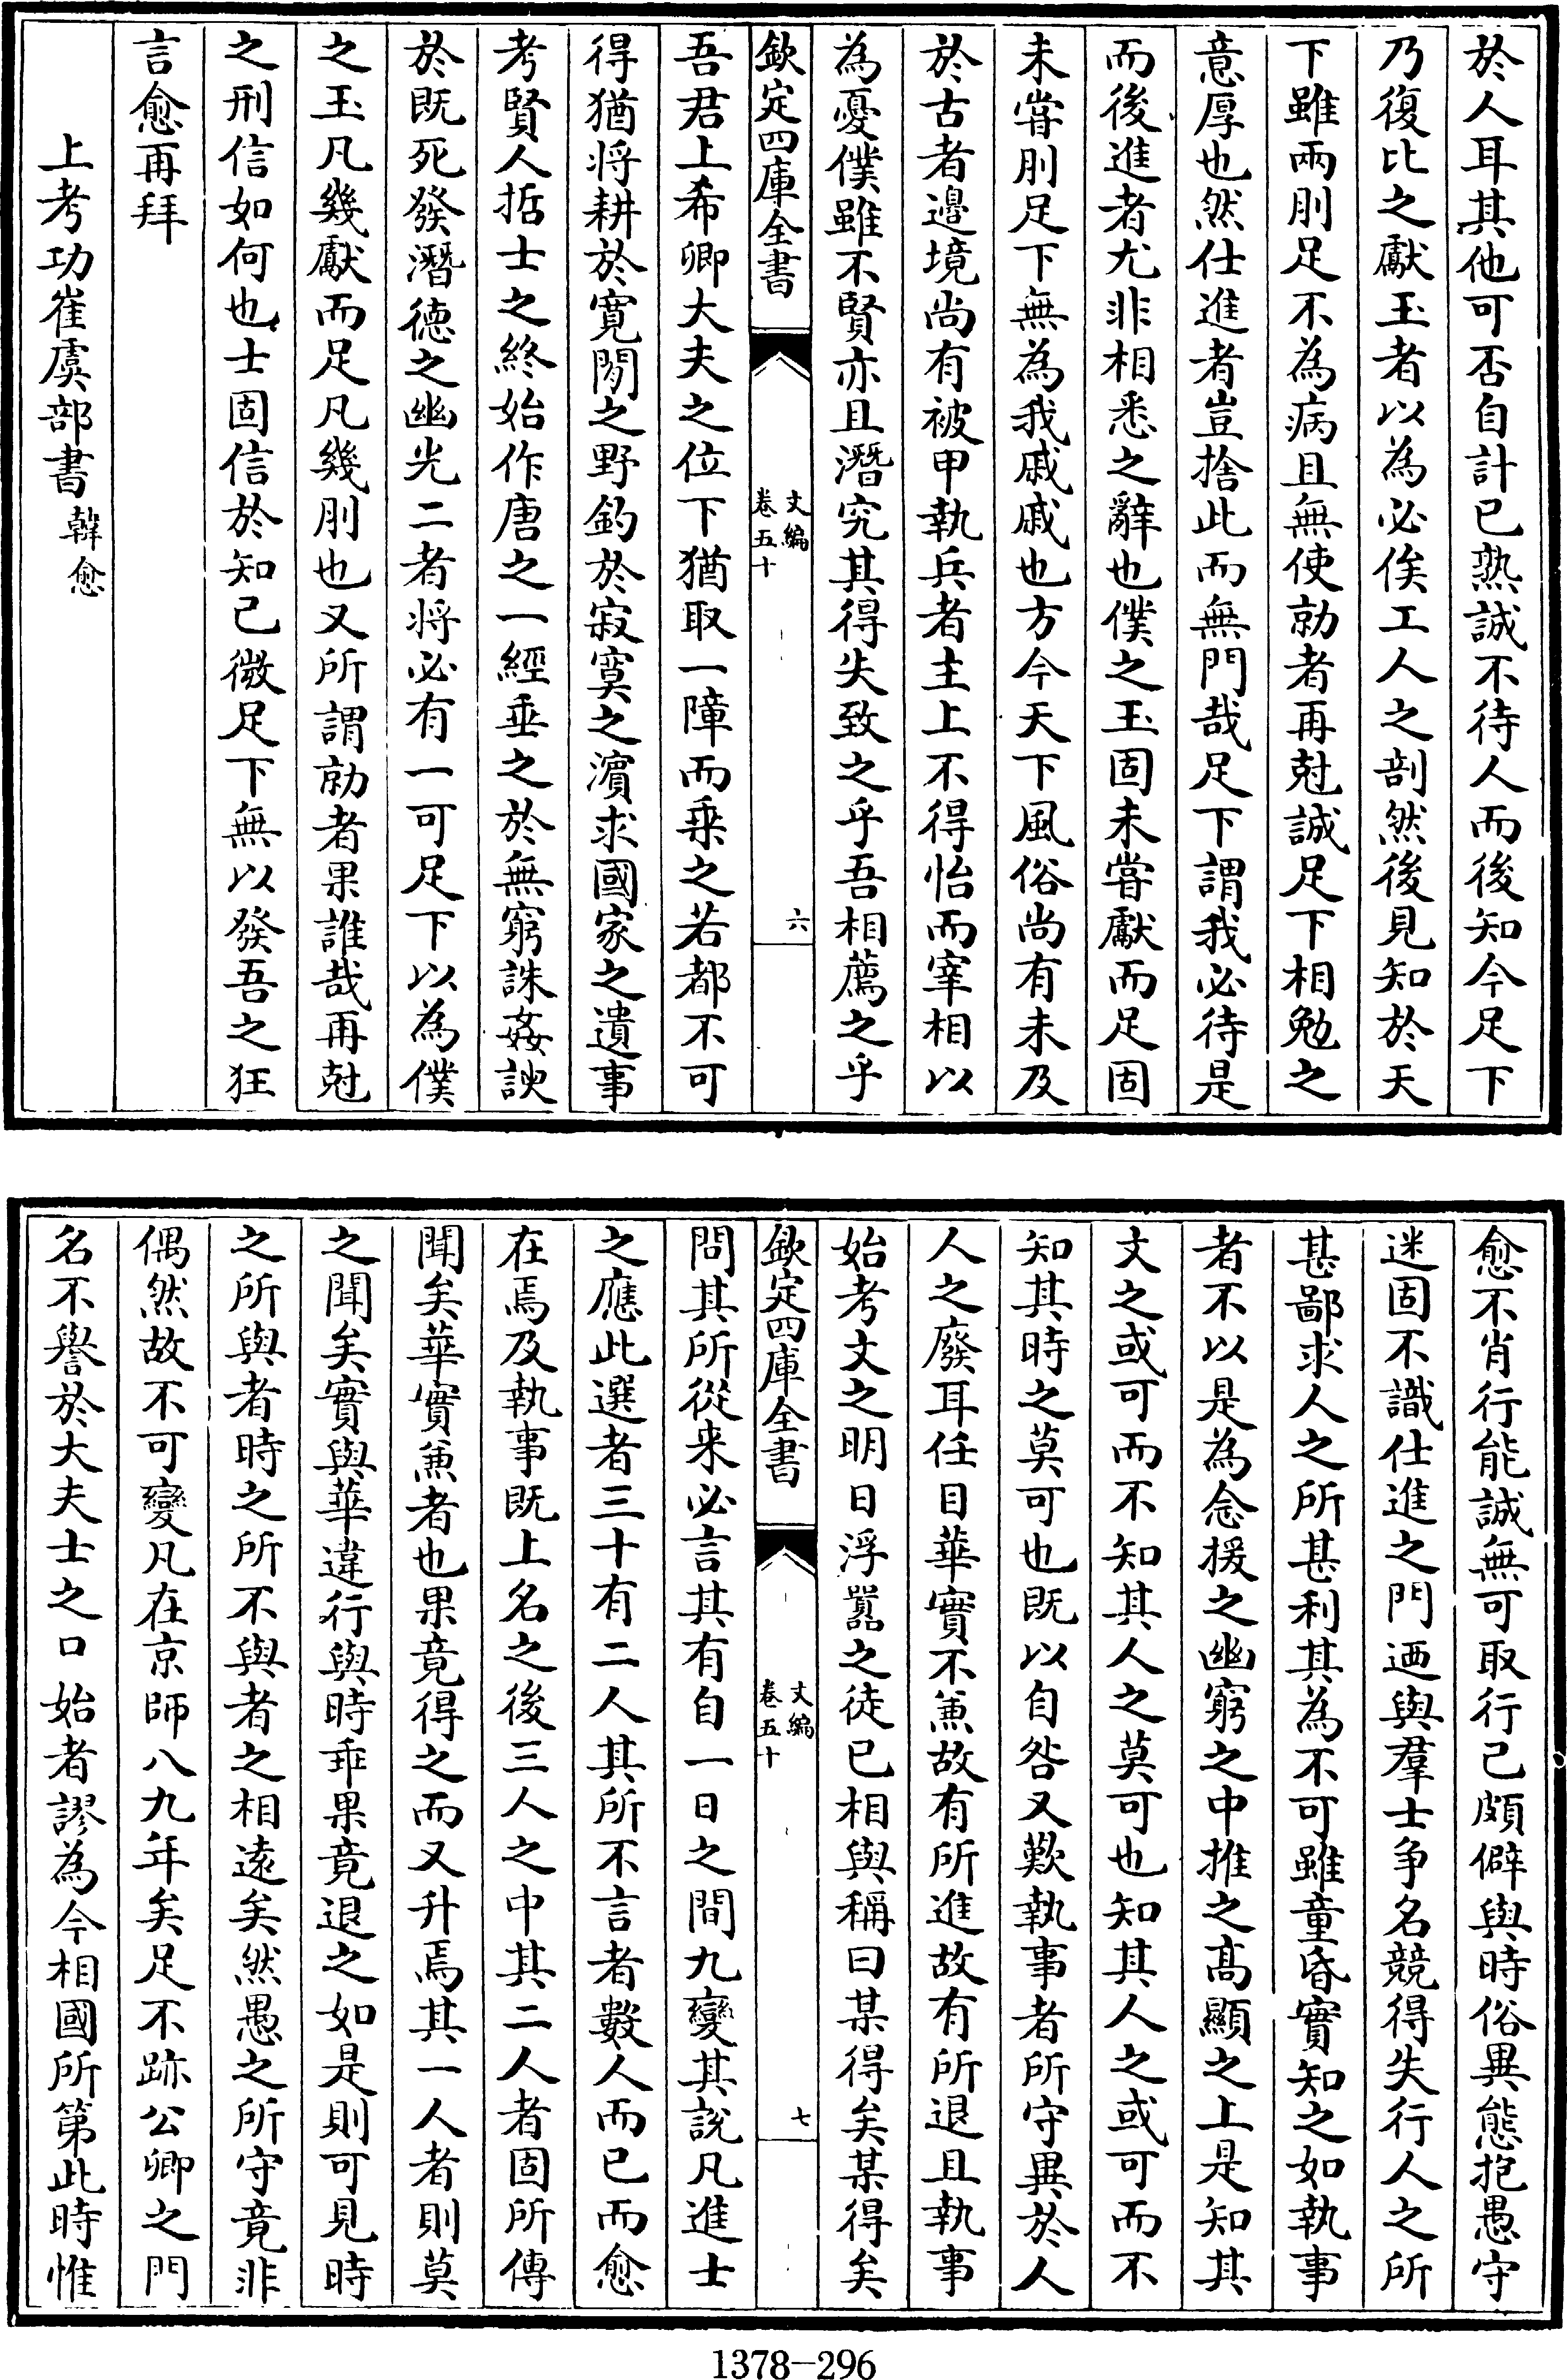 於人耳其他可否自計已熟誠不待人而後知今足下
乃復比之獻玉者以為必俟工人之剖然後見知於天
下雖兩刖足不為病且無使勍者再尅誠足下相勉之
意厚也然仕進者豈捨此而無門哉足下謂我必待是
而後進者尤非相悉之辭也僕之玉固未嘗獻而足固
未嘗刖足下無為我戚戚也方今天下風俗尚有未及
於古者邊境尚有被甲執兵者主上不得怡而宰相以
為憂僕雖不賢亦且潛究其得失致之乎吾相薦之乎
欽定四庫全書
文編
卷五十
六
吾君上希卿大夫之位下猶取一障而乘之若都不可
得猶將耕於寛閒之野釣於寂寞之濵求國家之遺事
考賢人哲士之終始作唐之一經垂之於無窮誅姦諛
於既死發潛德之幽光二者將必有一可足下以為僕
之玉凡幾獻而足凡幾刖也又所謂勍者果誰哉再尅
之刑信如何也士固信於知已微足下無以發吾之狂
言愈再拜
上考功崔虞部書 韓愈
愈不肖行能誠無可取行己頗僻與時俗異態抱愚守
迷固不識仕進之門迺與羣士爭名競得失行人之所
甚鄙求人之所甚利其為不可雖童昏實知之如執事
者不以是為念援之幽窮之中推之髙顯之上是知其
文之或可而不知其人之莫可也知其人之或可而不
知其時之莫可也既以自咎又歎執事者所守異於人
人之廢耳任目華實不兼故有所進故有所退且執事
始考文之明日浮囂之徒已相與稱曰某得矣某得矣
欽定四庫全書
文編
卷五十
七
問其所從来必言其有自一日之間九變其說凡進士
之應此選者三十有二人其所不言者數人而已而愈
在焉及執事既上名之後三人之中其二人者固所傳
聞矣華實兼者也果竟得之而又升焉其一人者則莫
之聞矣實與華違行與時乖果竟退之如是則可見時
之所與者時之所不與者之相遠矣然愚之所守竟非
偶然故不可變凡在京師八九年矣足不跡公卿之門
名不譽於大夫士之口始者謬為今相國所第此時惟
1378—296